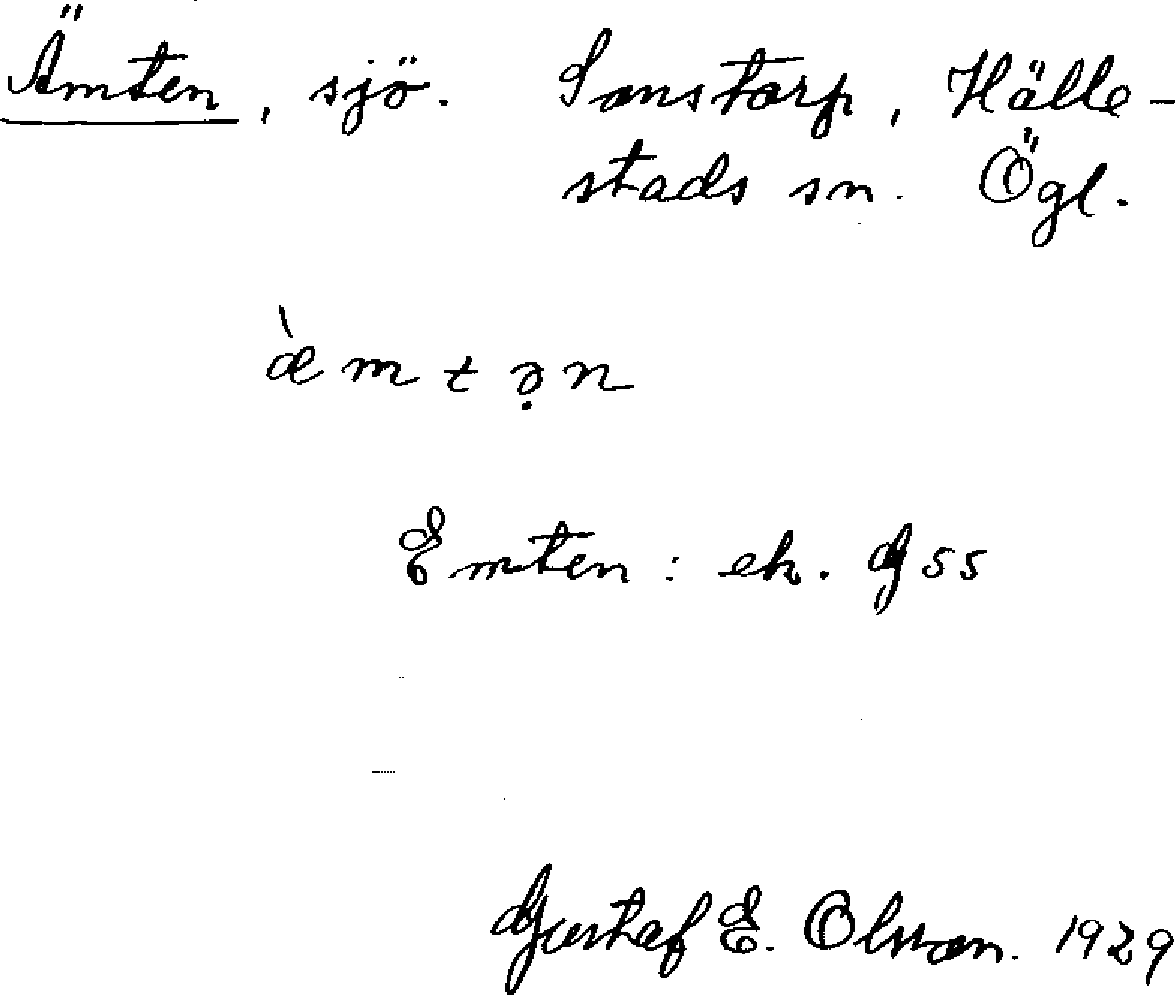 Ämten, sjö. Sonstorp, Hälle-
stads sn. Ögl.
æ̀mtə̣n
Emten: ek. G55
Gustaf E. Olsson. 1929